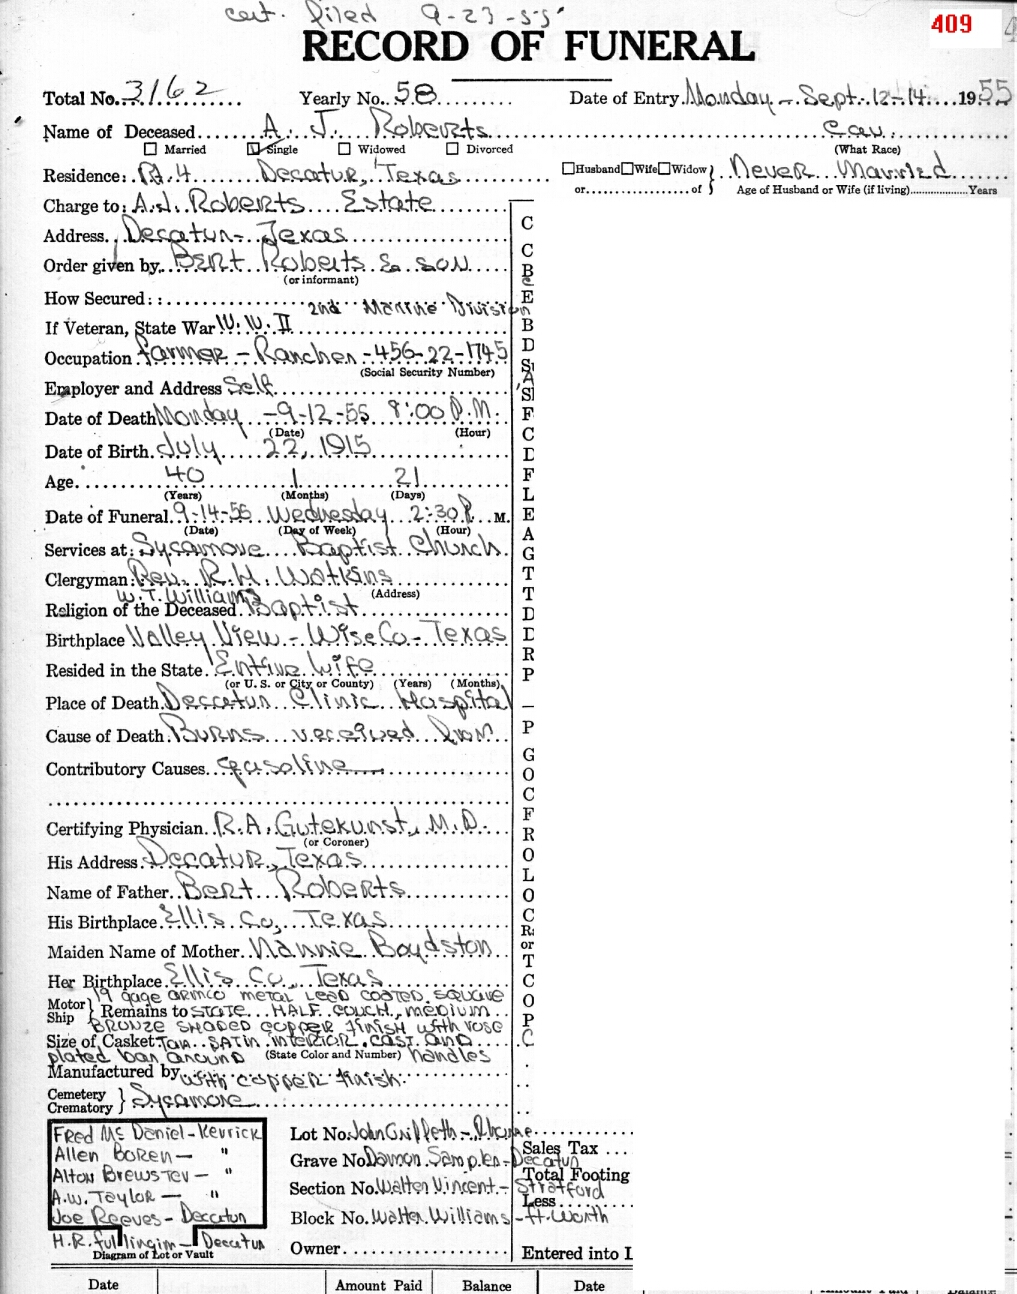 cert. filed 9-23-55
409
RECORD OF FUNERAL
Total No. 3162 Yearly No. 58 Date of Entry Monday - Sept. 12-14 1955
Name of Deceased A. J. Roberts Cau.
Married Single Widowed Divorced (What Race)
Residence: Rt. 4 Decatur, Texas Husband Wife Widow } Never Married
or of Age of Husband or Wife (if living) Years
Charge to: A.J. Roberts Estate
Address Decatur - Texas
Order given by Bert Roberts & son
(or informant)
How Secured:
2nd Marine Division
If Veteran, State War W.W. II
Occupation farmer - Rancher - 456-22-1745
(Social Security Number)
Employer and Address Self
Date of Death Monday - 9-12-55 8:00 P.M.
(Date) (Hour)
Date of Birth July 22, 1915
Age 40 1 21
(Years) (Months) (Days)
Date of Funeral 9-14-55 Wednesday 2:30 P. M.
(Date) (Day of Week) (Hour)
Services at: Sycamore Baptist Church
Clergyman: Rev. R.H. Watkins
W.T. Williams (Address)
Religion of the Deceased Baptist
Birthplace Valley View - Wise Co - Texas
Resided in the State Entire Life
(or U. S. or City or County) (Years) (Months)
Place of Death Decatur Clinic Hospital
Cause of Death Burns received from
Contributory Causes gasoline
Certifying Physician R.A. Gutekunst, M.D.
(or Coroner)
His Address Decatur, Texas
Name of Father Bert Roberts
His Birthplace Ellis Co, Texas
Maiden Name of Mother Nannie Boydston
Her Birthplace Ellis Co., Texas
19 gage armco metal lead coated square
Motor Ship } Remains to state HALF couch, medium
Bronze shaded copper finish with rose
Size of Casket Tan satin interior, cast and
plated bar around (State Color and Number) handles
Manufactured by with copper finish.
Cemetery Crematory } Sycamore
Fred McDaniel - Kevrick
Allen Boren - "
Alton Brewster - "
A.W. Taylor - "
Joe Reeves - Decatur
H.R. fullingim - Decatur
Diagram of Lot or Vault
Lot No. John Griffeth - Rhome
Grave No. Damon Samples - Decatur
Section No. Walter Vincent - Stratford
Block No. Walter Williams - Ft. Worth
Owner
C
C
B
E
B
D
F
C
D
F
L
E
A
G
T
T
D
D
R
P
P
G
O
C
F
R
O
L
O
C
or
T
C
O
P
C
Sales Tax
Total Footing
Less
Entered into L
Date Amount Paid Balance Date